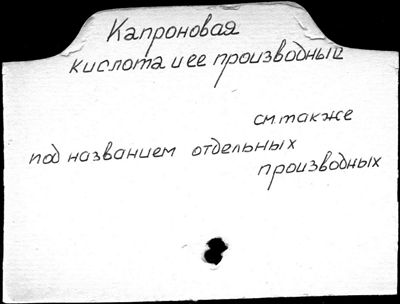 Капроновая
кислота и ее производные
см. также
под названием отдельных
производных